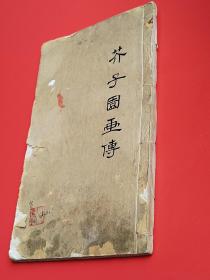 芥子園畫傳